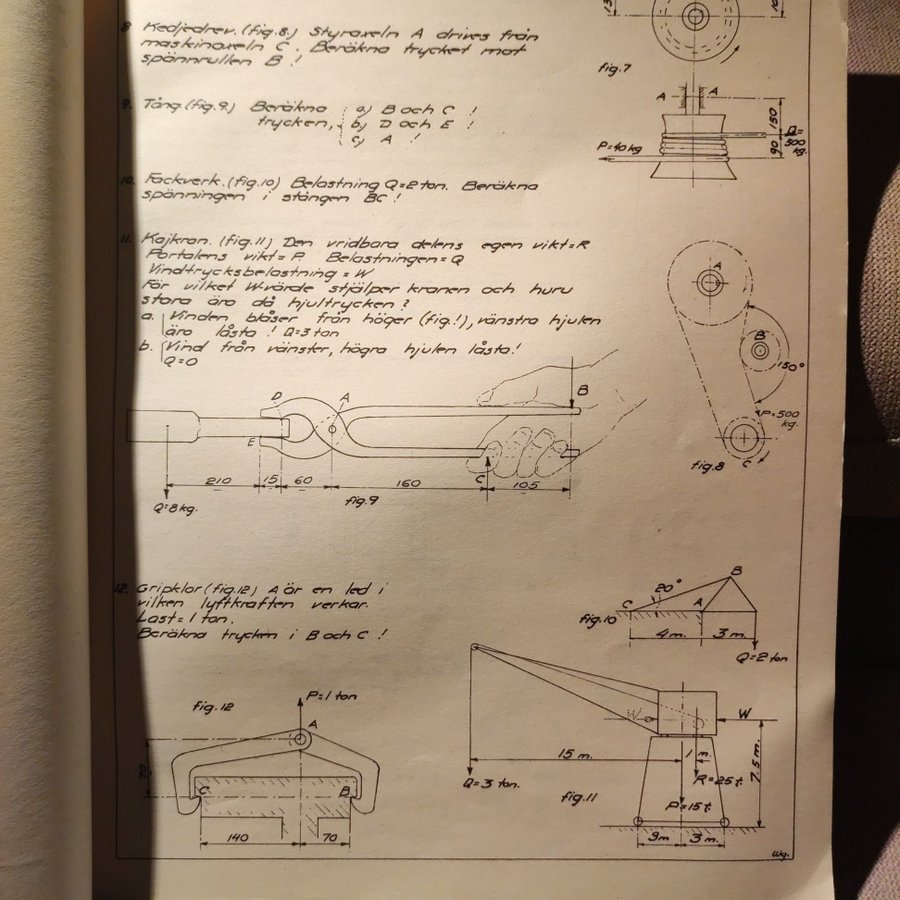 fig.7
8. Kedjedrev. (fig. 8.) Styraxeln A drives från
maskinaxeln C. Beräkna trycket mot
spännrullen B !
9. Tång. (fig. 9.) Beräkna
trycken,
a) B och C !
b) D och E !
c) A !
A A
150
90
P=40kg
Q=
500
kg.
10. Fackverk. (fig. 10) Belastning Q=2 ton. Beräkna
spänningen i stången BC !
11. Kajkran. (fig. 11) Den vridbara delens egen vikt=R
Portalens vikt=P. Belastningen=Q
Vindtrycksbelastning = W
För vilket W-värde stjälper kranen och huru
stora äro då hjultrycken ?
a. Vinden blåser från höger (fig.!), vänstra hjulen
äro låsta ! Q=3 ton
b. Vind från vänster, högra hjulen låsta!
Q=0
A
B
150°
P=500
kg.
C
fig.8
D A B
E
C
210 15 60 160 105
Q=8kg.
fig.9
12. Gripklor (fig. 12) A är en led i
vilken lyftkraften verkar.
Last=1 ton.
Beräkna trycken i B och C !
B
20°
C A
fig.10
4m. 3m.
Q=2 ton
P=1 ton
fig.12
A
70
C B
140 70
W W
15 m. 1 m.
7.5 m.
Q=3 ton.
R=25t.
fig.11
P=15t.
3m 3m.
Wg.